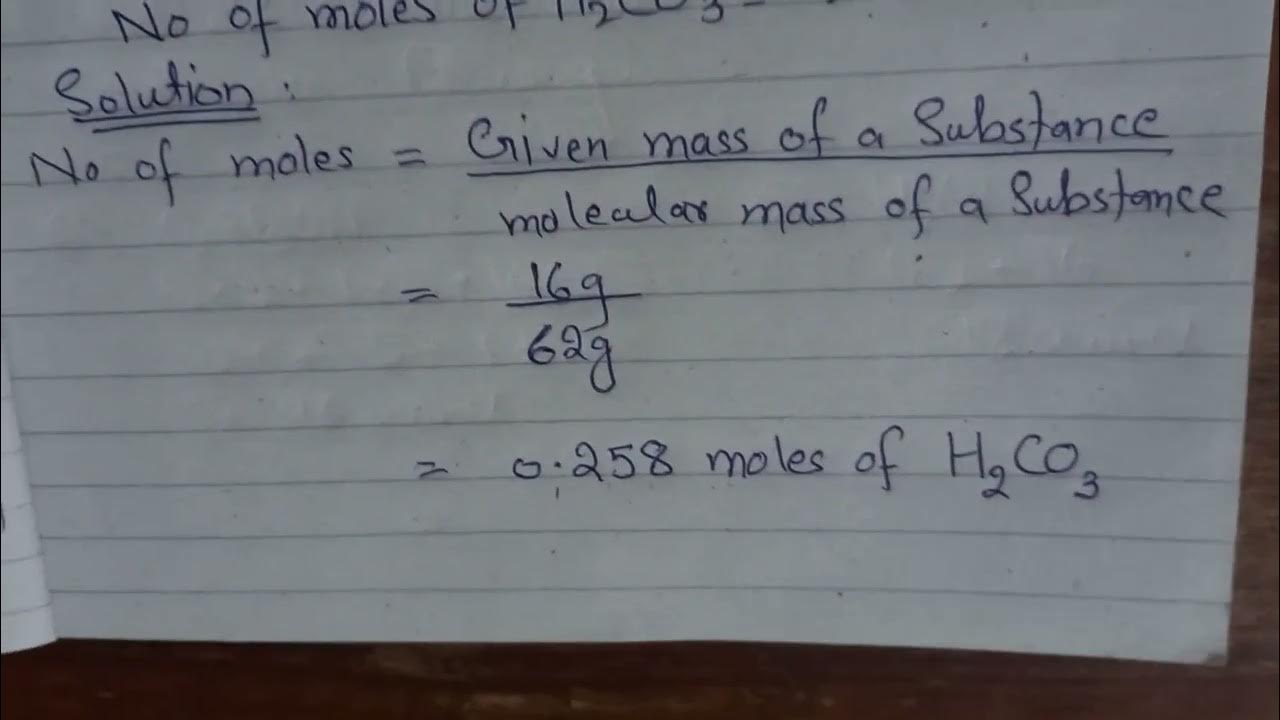 No of moles of H₂CO₃
Solution :
No of moles = Given mass of a Substance
molecular mass of a Substance
= 16g
62g
= 0.258 moles of H₂CO₃